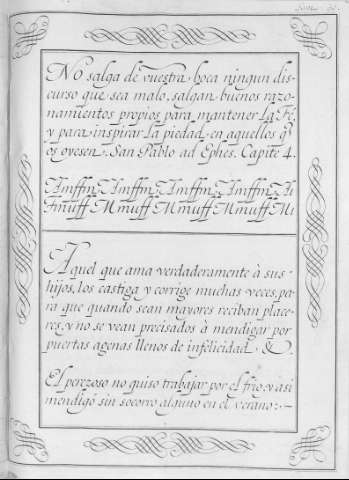 No salga de vuestra boca ningun dis-
curso que sea malo, salgan buenos razo-
namientos propios para mantener La Fé,
y para inspirar La piedad en aquellos q̃
os oyesen. San Pablo ad Ephes. Capite 4.
Amffm Amffm Amffm Amffm Au
Mmuff Mmuff Mmuff Mmuff Mi
Aquel que ama verdaderamente à sus
hijos, los castiga y corrige muchas veces, pa
ra que quando sean mayores reciban place-
res, y no se vean precisados à mendigar por
puertas agenas llenos de infelicidad, &.
El perezoso no quiso trabajar por el frio, y asi
mendigó sin socorro alguno en el verano:~